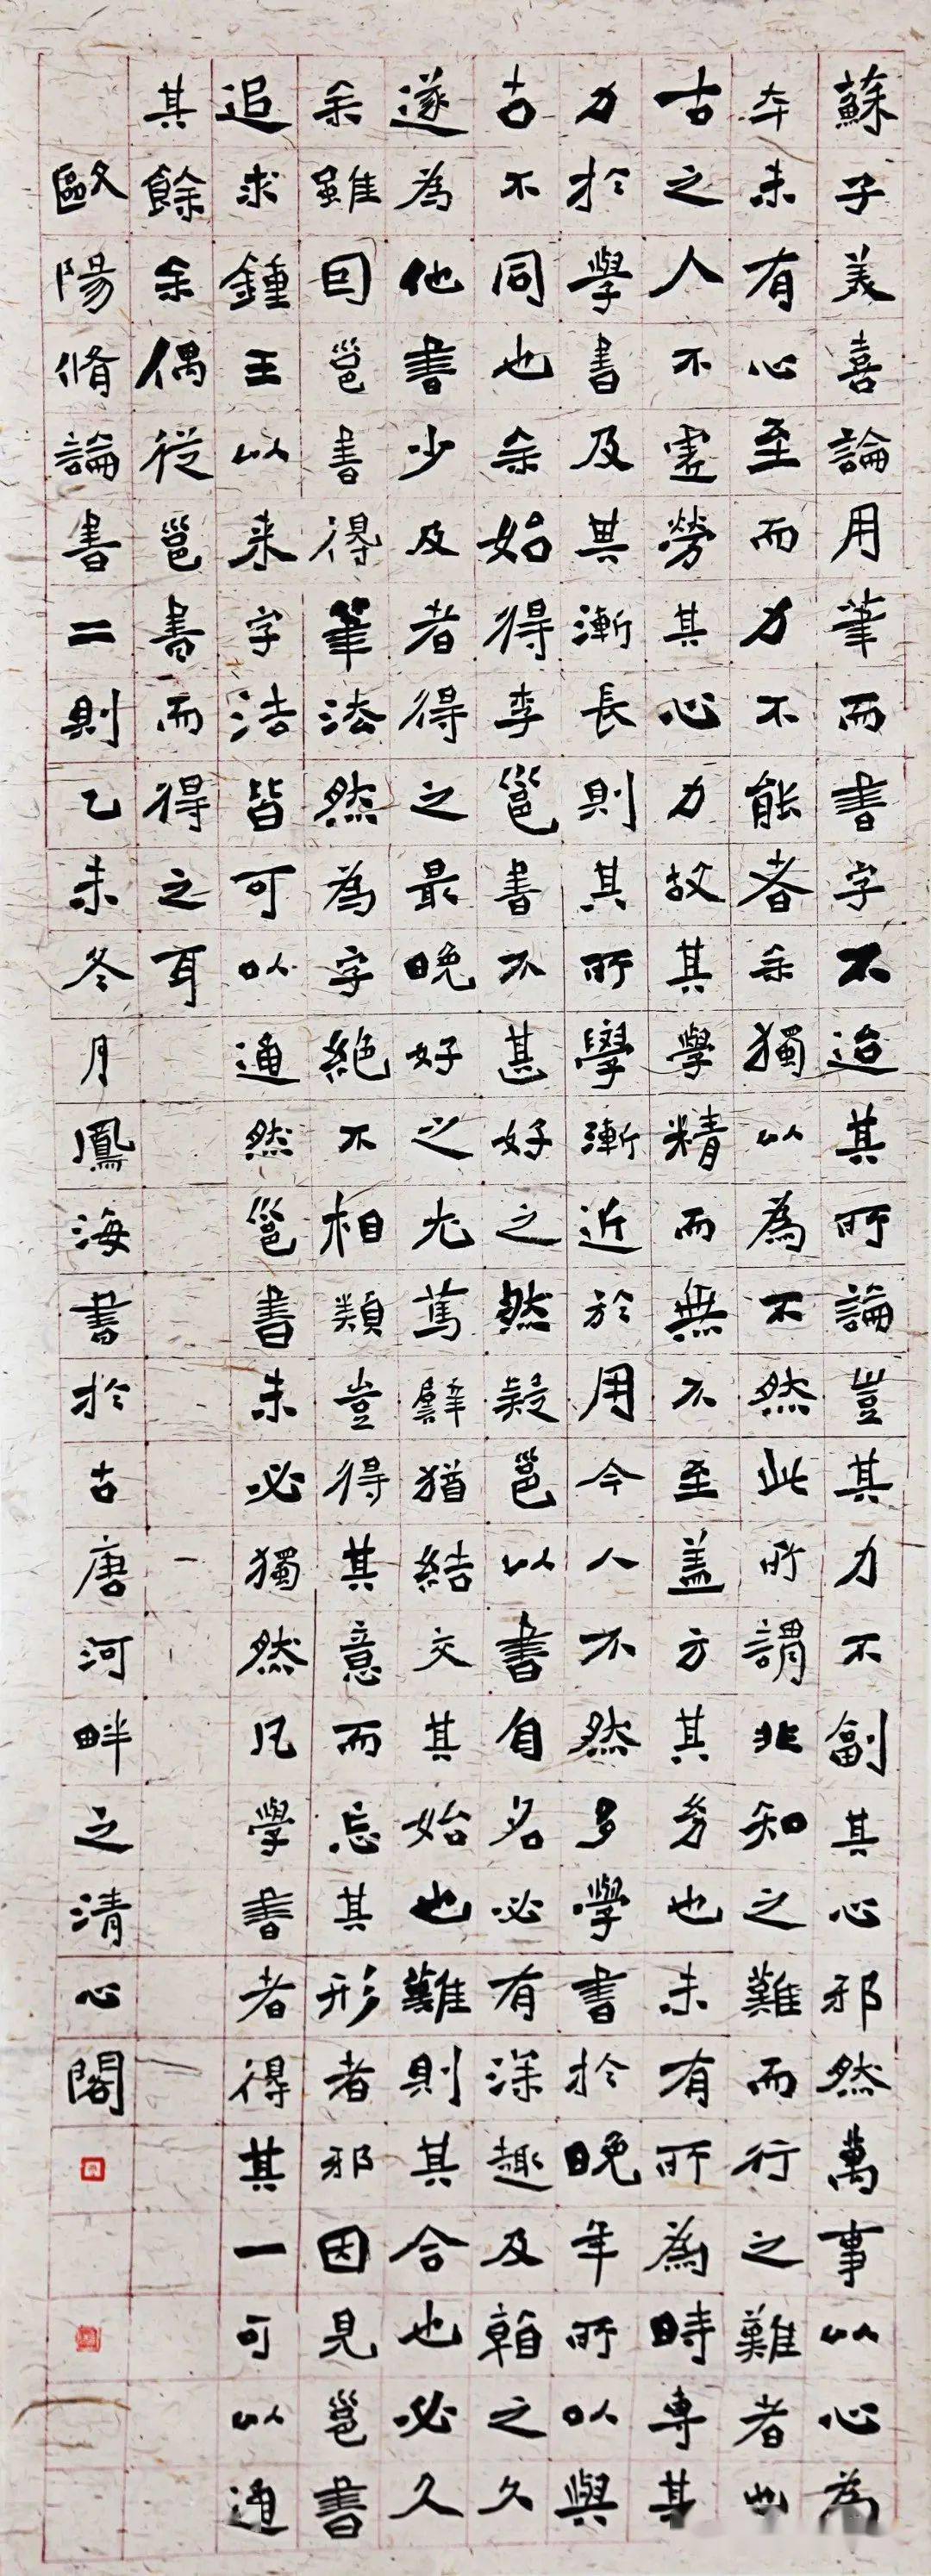 蘇子美喜論用筆而書字不迨其所論豈其力不副其心邪然萬事以心為
本未有心至而力不能者余獨以為不然此所謂非知之難而行之難者也
古之人不虛勞其心力故其學精而無不至盖方其幼也未有所為時專其
力於學書及其漸長則其所學漸近於用今人不然多學書於晚年所以與
古不同也余始得李邕書不甚好之然疑邕以書自名必有深趣及翰之久
遂為他書少及者得之最晚好之尤篤譬猶結交其始也難則其合也必久
余雖因邕書得筆法然為字絕不相類豈得其意而忘其形者邪因見邕書
追求鍾王以来字法皆可以通然邕書未必獨然凡學書者得其一可以通
其餘余偶從邕書而得之耳
歐陽脩論書二則乙未冬月鳳海書於古唐河畔之清心閣